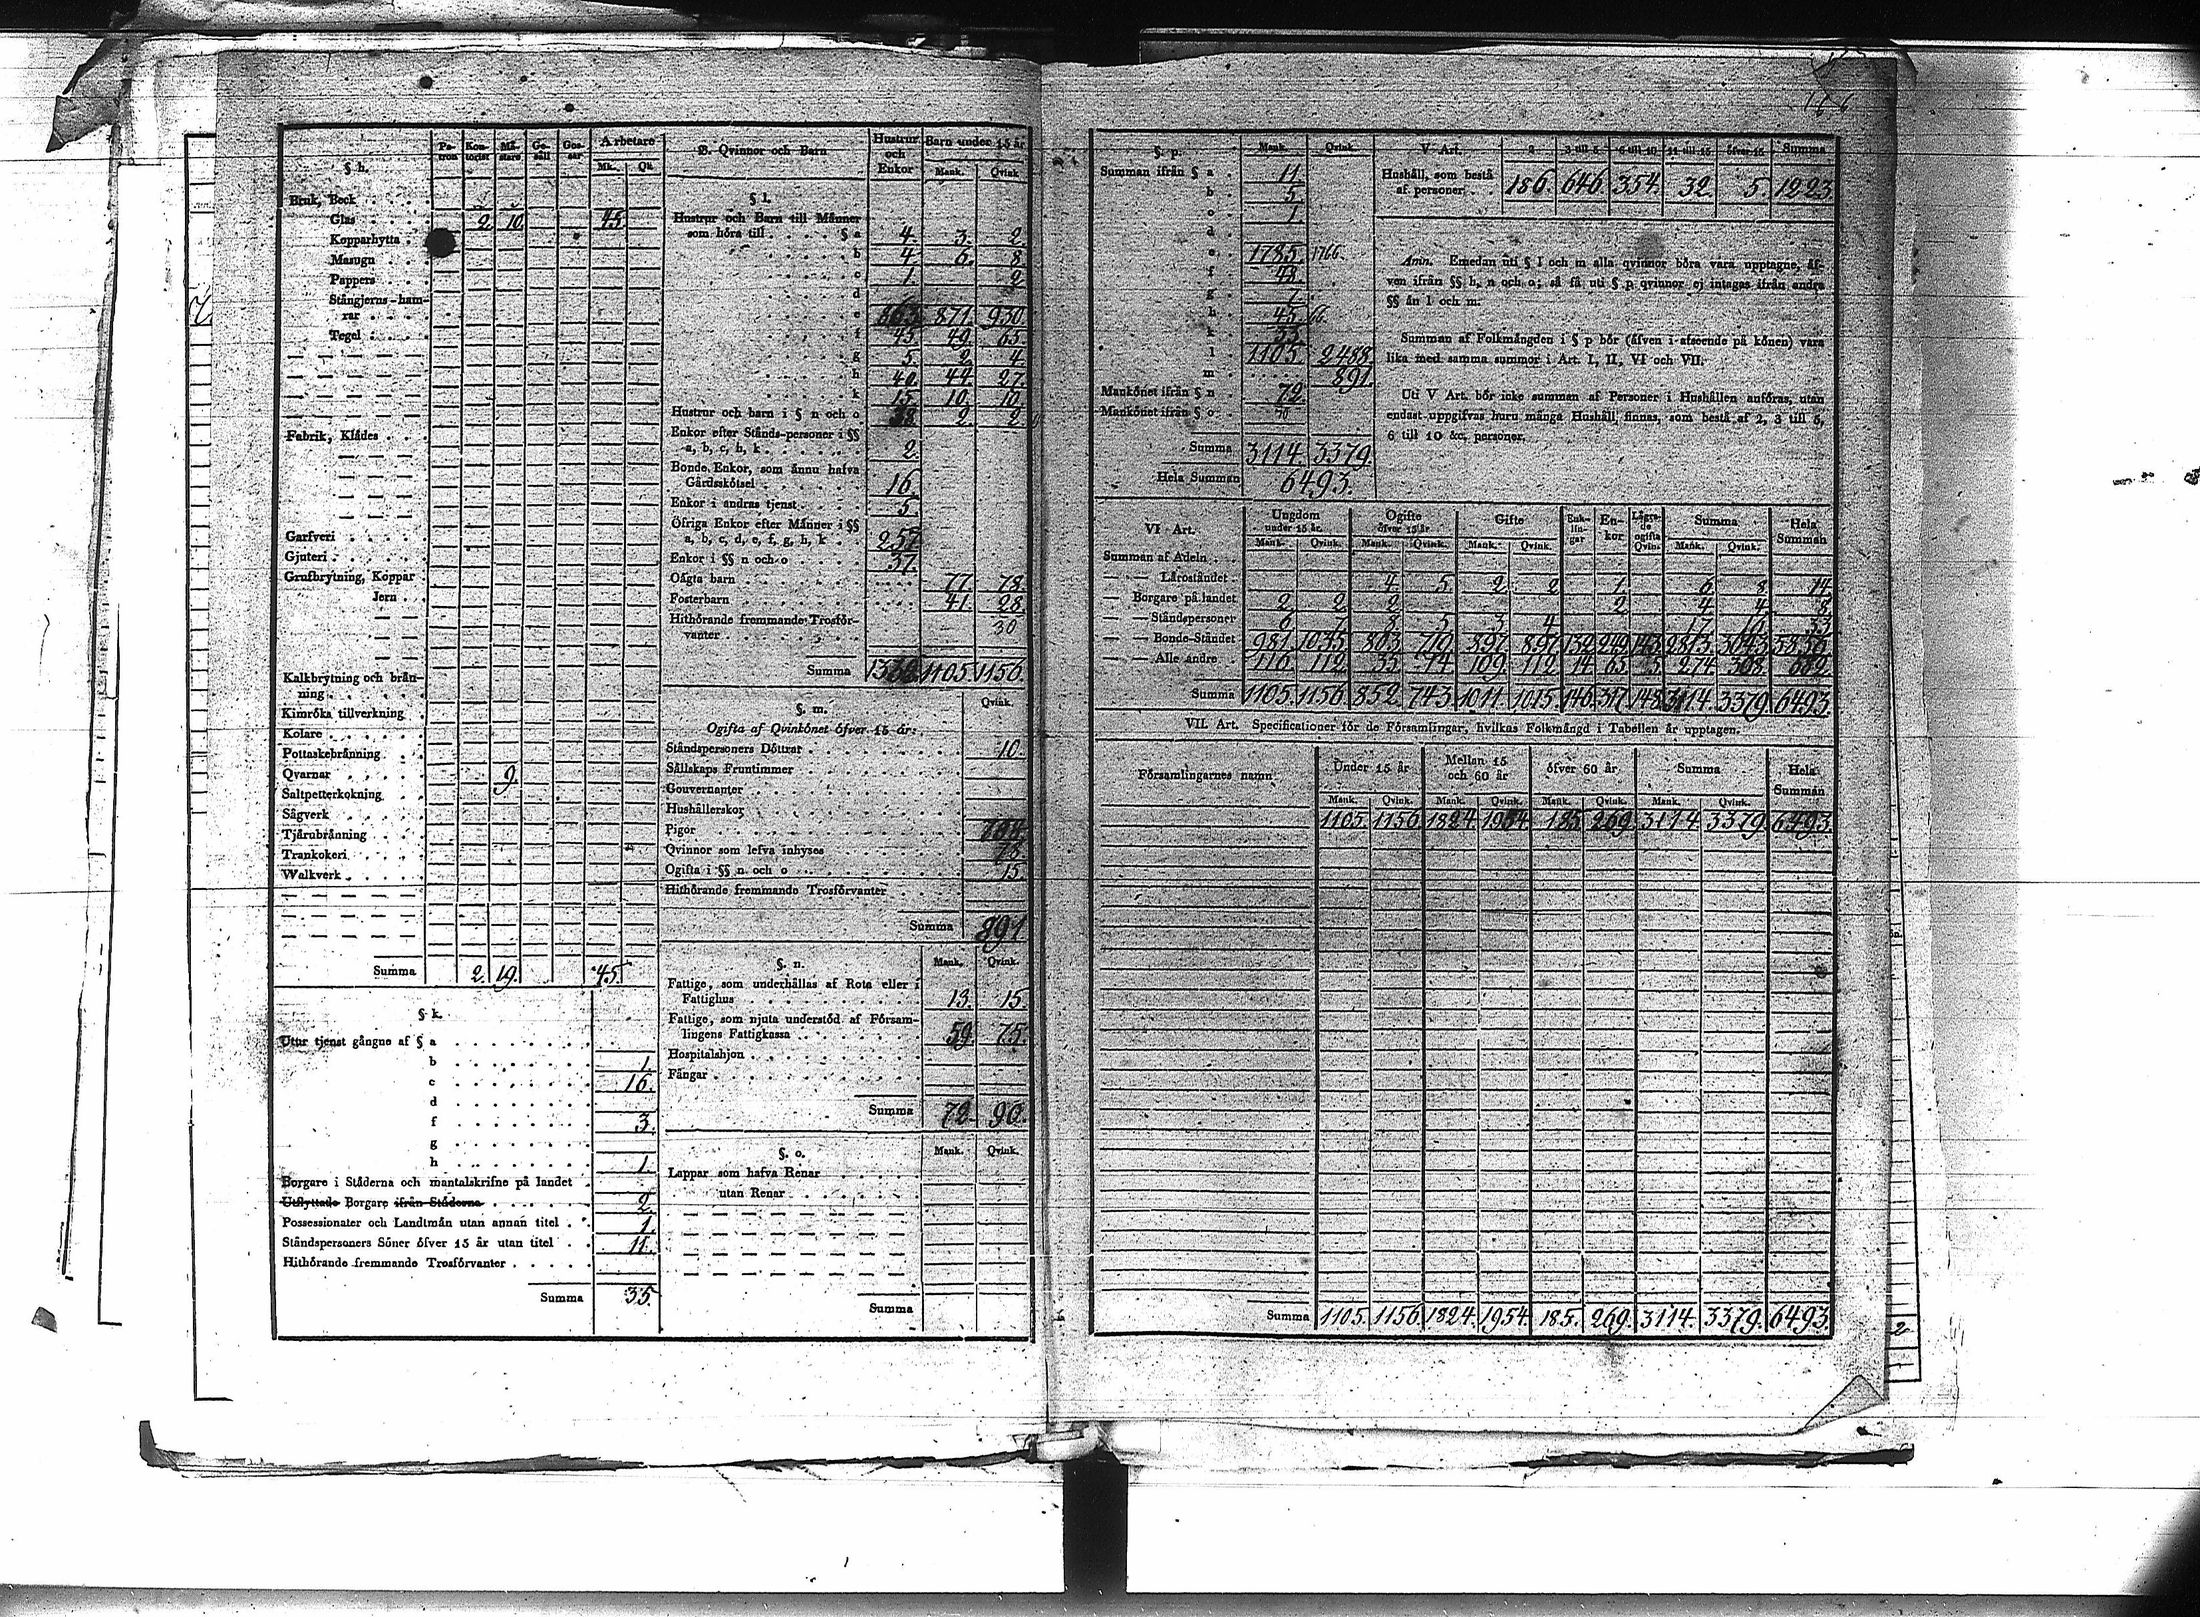 § h. Pa- tron Kon- torist Må- stare Ge- säll Gos- sar Arbetare Mk. Qk.
Bruk, Beck
Glas 2. 10. 45.
Kopparhytta
Masugn
Pappers
Stångjerns-ham-
rar
Tegel
Fabrik, Klådes
Garfveri
Gjuteri
Grufbrytning, Koppar
Jern
Kalkbrytning och brån-
ning
Kimröka tillverkning
Kolare
Pottaskebrånning
Qvarnar 9.
Saltpetterkokning
Sågverk
Tjårubrånning
Trankokeri
Walkverk
Summa 2. 19. 45.
§ k.
Utur tjenst gångne af § a
b 1.
c 16.
d
f 3.
g
h 1.
Borgare i Ståderna och mantalskrifne på landet
Utflyttade Borgare ifrån Ståderna 2.
Possessionater och Landtmån utan annan titel 1.
Ståndspersoners Söner öfver 15 år utan titel 11.
Hithörande fremmande Trosförvanter
Summa 35.
B. Qvinnor och Barn Hustrur och Enkor Barn under 15 år Mank. Qvink
§ l.
Hustrur och Barn till Månner
som höra till § a 4. 3. 2.
b 4. 6. 8.
c 1. 2
d
e 863 871. 930
f 45. 49. 65.
g 5. 2. 4.
h 40. 44. 27.
k 15. 10. 10.
Hustrur och barn i § n och o 2. 2.
Enkor efter Stånds-personer i §§
a, b, c, h, k 2.
Bonde Enkor, som ånnu hafva
Gårdsskötsel 16.
Enkor i andras tjenst 5.
Öfriga Enkor efter Månner i §§
a, b, c, d, e, f, g, h, k 257
Enkor i §§ n och o 37.
Oågta barn 77. 78.
Fosterbarn 41. 28.
Hithörande fremmande Trosför-
vanter 30
Summa 1105. 1156.
§. m. Qvink.
Ogifta af Qvinkönet öfver 15 år:
Ståndspersoners Döttrar 10.
Sållskaps Fruntimmer
Gouvernanter
Hushållerskor
Pigor
Qvinnor som lefva inhyses 78.
Ogifta i §§ n och o 15.
Hithörande fremmande Trosförvanter
Summa 891
§. n. Mank. Qvink.
Fattige, som underhållas af Rota eller i
Fattighus 13. 15.
Fattige, som njuta understöd af Försam-
lingens Fattigkassa 59. 75.
Hospitalshjon
Fångar
Summa 72. 90.
§. o. Mank. Qvink.
Lappar som hafva Renar
utan Renar
Summa
§. p. Mank. Qvink.
Summan ifrån § a 11.
b 5.
c 1.
d
e 1785. 1766.
f 48.
g 7.
h 45. 66.
k 35.
l 1105. 2488.
m 891.
Mankönet ifrån § n 72.
Mankönet ifrån § o
Summa 3114. 3379.
Hela Summan 6493.
V Art. 2 3 till 5 6 till 10 11 till 15 öfver 15 Summa
Hushåll, som bestå
af personer 186. 646. 354. 32. 5. 1223.
Anm. Emedan uti § l och m alla qvinnor böra vara upptagne, åf-
ven ifrån §§ h, n och o; så få uti § p qvinnor ej intagas ifrån andra
§§ ån l och m.
Summan af Folkmångden i § p bör (åfven i afseende på könen) vara
lika med samma summor i Art. I, II, VI och VII.
Uti V Art. bör icke summan af Personer i Hushållen anföras, utan
endast uppgifvas huru många Hushåll finnas, som bestå af 2, 3 till 5,
6 till 10 &c. personer.
VI Art. Ungdom under 15 år. Ogifte öfver 15 år Gifte Enk- lin- gar En- kor Lågra- de ogifta Qvin. Summa Hela Summan
Mank. Qvink. Mank. Qvink. Mank. Qvink. Mank. Qvink.
Summan af Adeln
— — Låroståndet 4. 5. 2. 2. 1. 6. 8. 14.
— Borgare på landet 2. 2. 2. 2. 4. 4. 8.
— — Ståndspersoner 6. 7. 8. 5. 3. 4. 17. 16. 33.
— — Bonde-Ståndet 981. 1035. 803. 719. 897. 897. 132. 249. 143. 2813. 3043. 5856.
— — Alle andre 116. 112. 35. 74. 109. 112. 14. 65. 5. 274. 308. 682.
Summa 1105. 1156. 852. 743. 1011. 1015. 146. 317. 148. 3114. 3379. 6493.
VII. Art. Specificationer för de Församlingar, hvilkas Folkmångd i Tabellen år upptagen.
Församlingarnes namn Under 15 år Mellan 15 och 60 år öfver 60 år Summa Hela Summan
Mank. Qvink. Mank. Qvink. Mank. Qvink. Mank. Qvink.
1105. 1156. 1824. 1954. 185. 269. 3114. 3379. 6493.
Summa 1105. 1156. 1824. 1954. 185. 269. 3114. 3379. 6493.